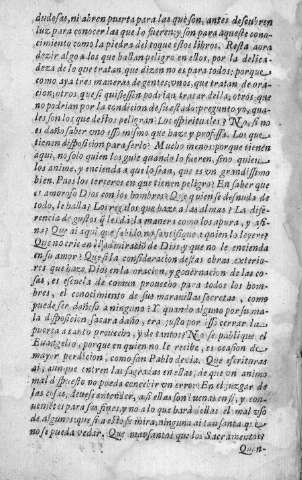 dudosas, ni abren puerta para las que son, antes descubren
luz para conocer las que lo fueren, y son para aqueste cono-
cimiento como la piedra del toque estos libros. Resta aora
dezir algo a los que hallan peligro en ellos, por la delica-
deza de lo que tratan, que dizen no es para todos: porque
como aya tres maneras de gentes, unos, que tratan de ora-
cion; otros, que si quisiessen podrian tratar della; otros, que
no podrian por la condicion de su estado: pregunto yo, qua-
les son los que destos peligran? Los espirituales? No, si no
es daño saber uno esso mismo que haze y professa. Los que
tienen disposicion para serlo? Mucho menos: porque tienen
aqui, no solo quien los guie quando lo fueren, sino quien
los anime, y encienda a que lo sean, que es un grandissimo
bien. Pues los terceros en que tienen peligro? En saber que
es amoroso Dios con los hombres? Que quien se desnuda de
todo, le halla? Los regalos que haze a las almas? La dife-
rencia de gustos que les da? la manera como los apura, y afi-
na? Que ai aqui que sabido, no santifique a quien lo leyere?
Que no crie en el admiracion de Dios, y que no le encienda
en su amor? Que si la consideracion destas obras exterio-
res que haze Dios en la criacion, y governacion de las co-
sas, es escuela de comun provecho para todos los hom-
bres, el conocimiento de sus maravillas secretas, como
puede ser dañoso a ninguno? Y quando alguno por su ma-
la disposicion, sacara daño, era justo por esso cerrar la
puerta a tanto provecho, y de tantos? No se publique el
Evangelio, porque en quien no le recibe, es ocasion de
mayor perdicion, como san Pablo dezia. Que escrituras
ai, aunque entren las sagradas en ellas, de que un animo
mal dispuesto no pueda concebir un error? En el juzgar de
las cosas, devese entender, a si ellas son buenas en si, y con-
venientes para sus fines, y no a lo que hara dellas el mal uso
de algunos: que si a esto se mira, ninguna ai tan santa que
no se pueda vedar. Que mas santos que los Sacramentos?
Quan-